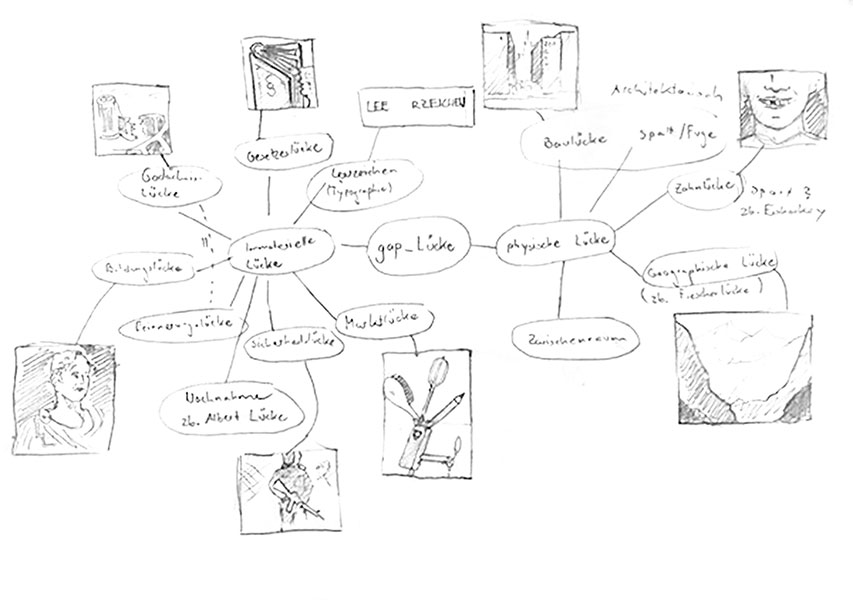 LEE RZEICHEN
Architektonisch
Gesetzeslücke
Baulücke Spalt/Fuge
Leerzeichen
(Typographie)
Lücke
Zahnlücke
Spalt
zb.
Immaterielle
Lücke
gap_Lücke
physische Lücke
Bildungslücke
Geographische Lücke
(zb. Fiescherlücke)
Erinnerungslücke
Sicherheitslücke
Marktlücke
Zwischenraum
Nachname
zb. Albert Lücke
§